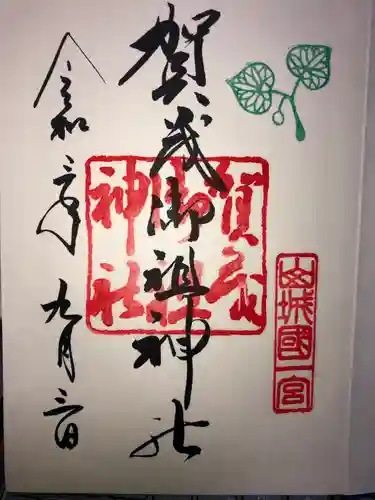 山城國一宮
賀茂御祖神社
賀茂御祖神社
令和二年九月三日